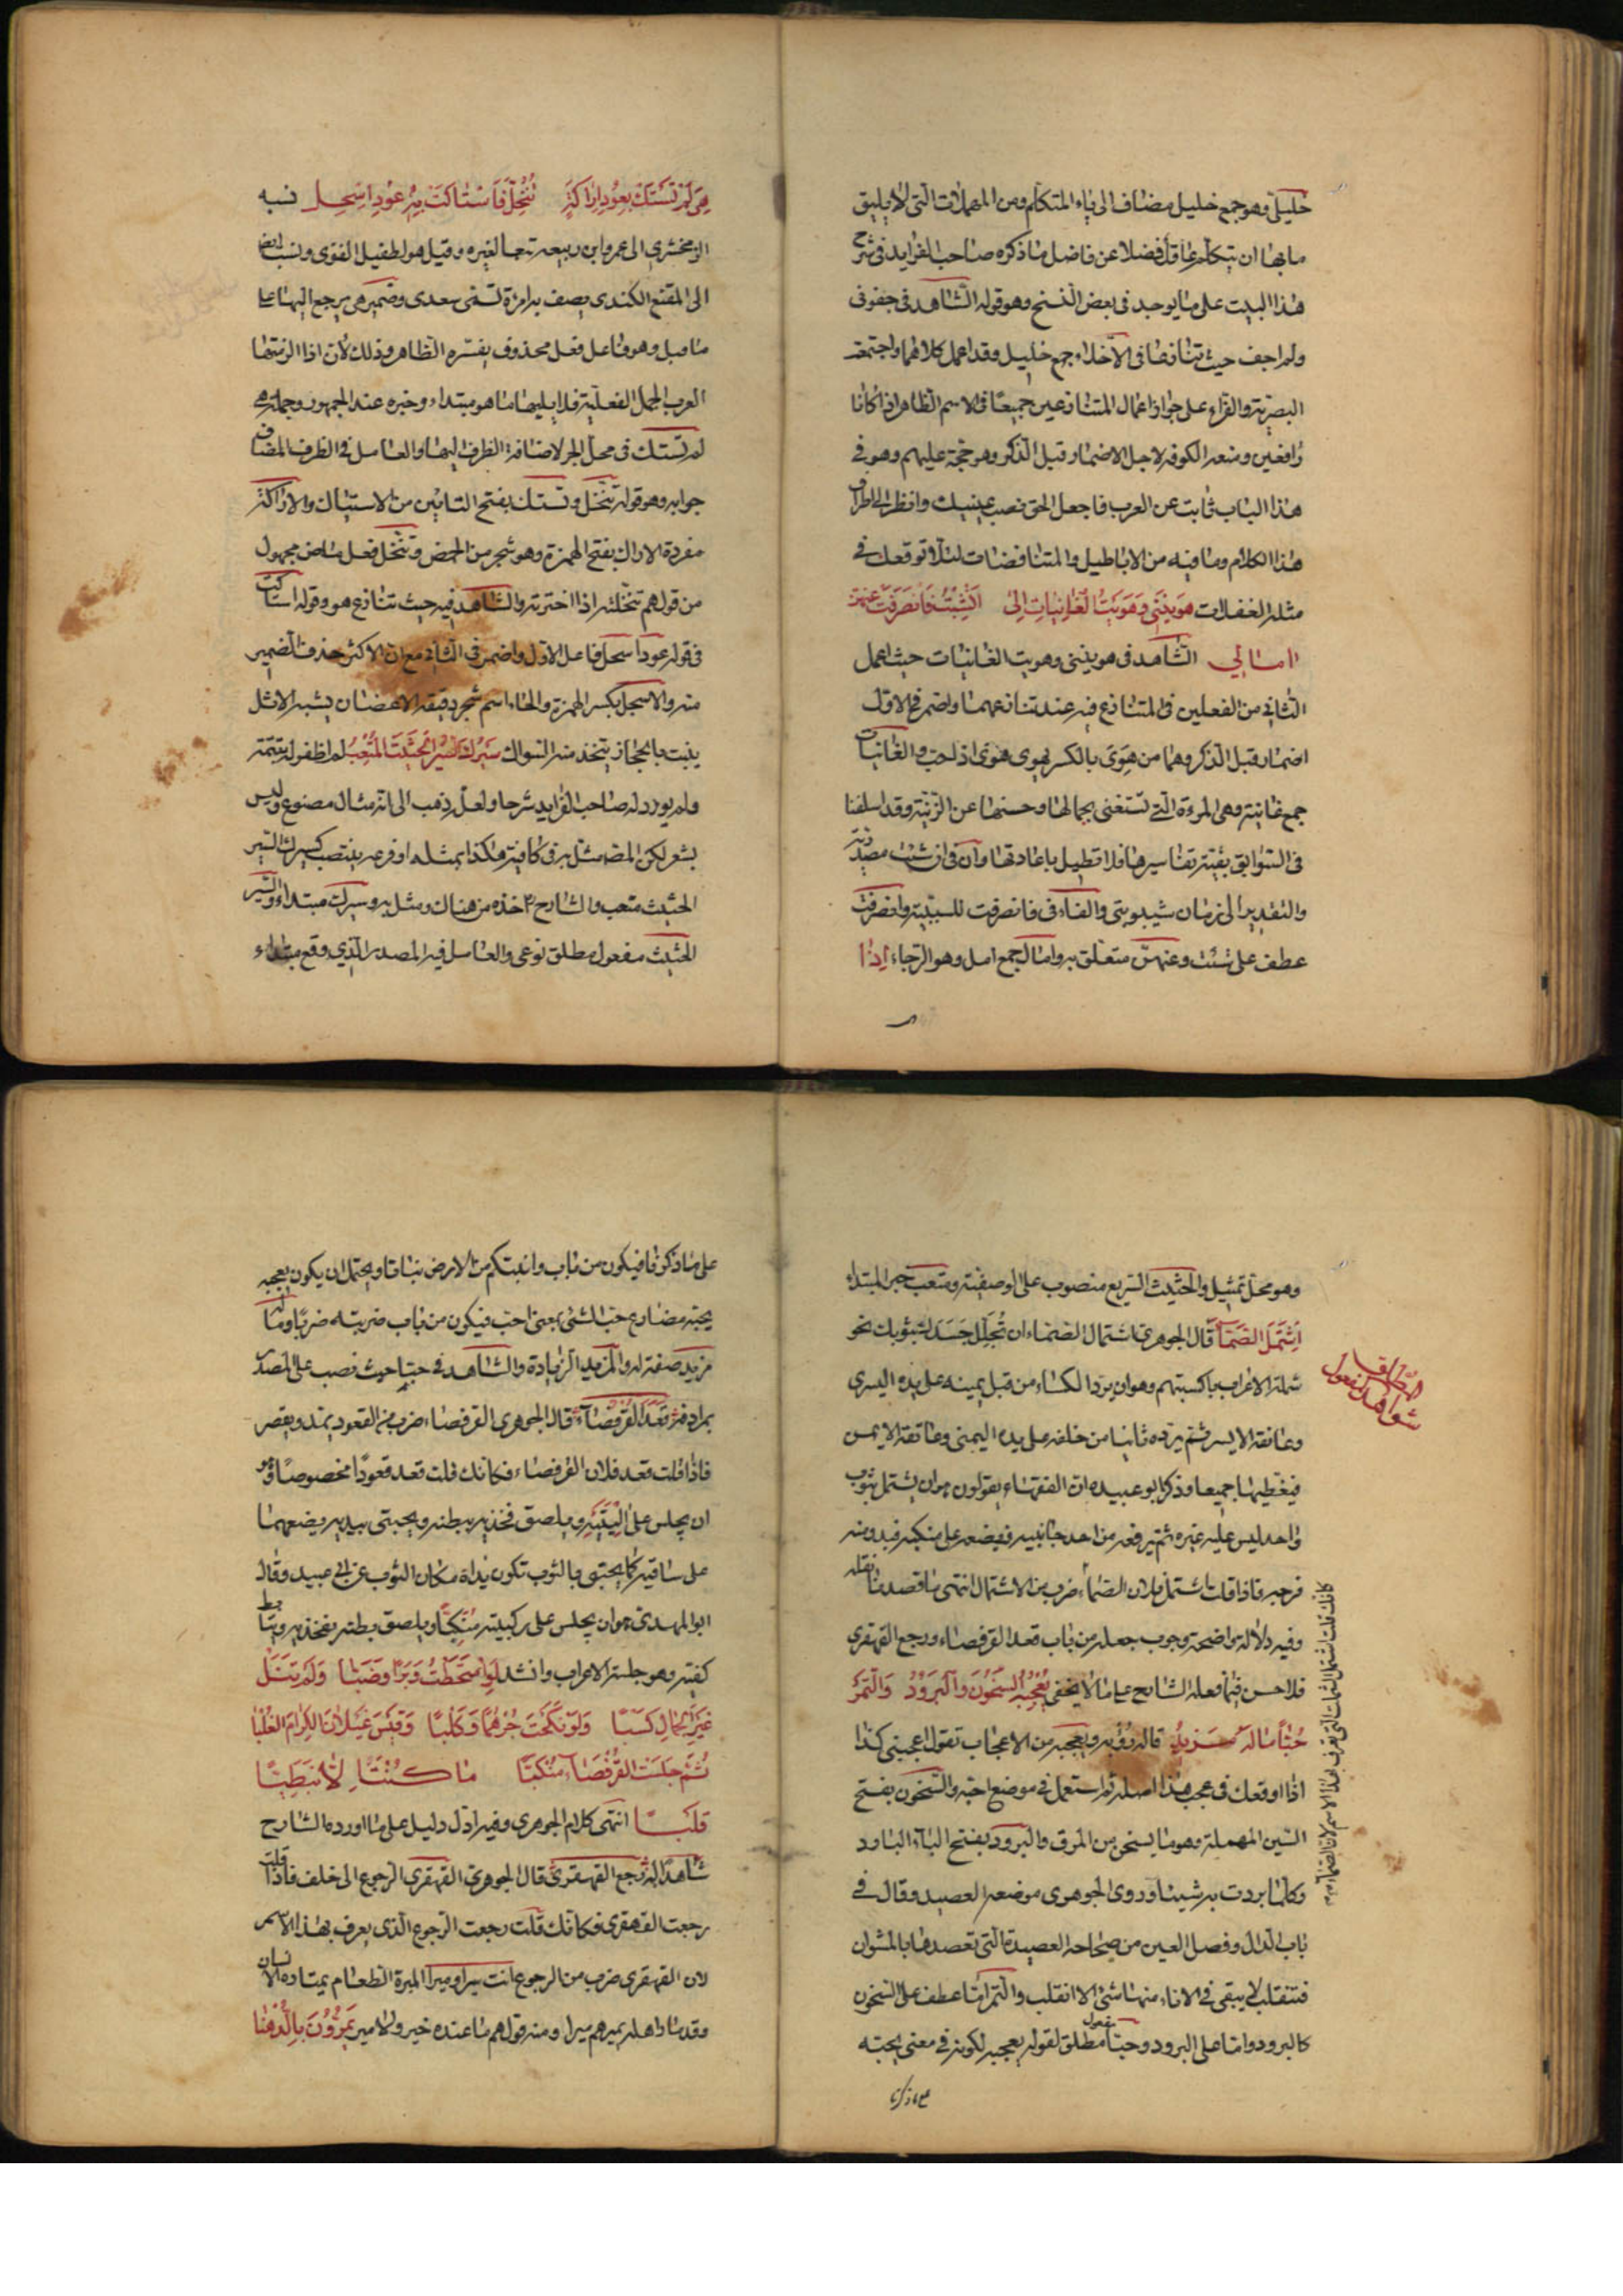 خليلي وهو جمع خليل مضاف الى ياء المتكلم ومن المهملات التي لا يليق
مابها ان يتكلم عاقل فضلا عن فاضل ما ذكره صاحب الفرايد في شرح
هذا البيت على ما يوجد في بعض النسخ وهو قوله الشاهد في جفوني
ولم اجف حيث تنازعا في الاخلاء جمع خليل وقد اعمل كلاهما واجتمعت
البصرية والفراء على جواز اعمال المتنازعين جميعا في الاسم الظاهر اذا كانا
رافعين ومنعه الكوفه لاجل الاضمار قبل الذكر وهو حجة عليهم وهو في
هذا الباب ثابت عن العرب فاجعل الحق نصب عينيك وانظر الى اطراف
هذا الكلام وما فيه من الاباطيل والمتناقضات لئلا توقعك في
مثله الغفلات هَوِينَني وَهَوِيتُ الغَانِياتِ اِلى اَن شِبْتُ فَانصَرَفَت عنهن
امالي الشاهد في هوينني وهويت الغانيات حيث اعمل
الثاني من الفعلين في المتنازع فيه عند تنازعهما واضمر في الاول
اضمار قبل الذكر وهما من هَوِيَ بالكسر يهوى هوى اذ احب والغانيات
جمع غانية وهي المرءة التي تستغني بجمالها وحسنها عن الزينة وقد اسلفنا
في السوابق بقية تفاسيرها فلا تطيل باعادتها وان في ان شبت مصدرية
والتقدير الى زمان شيبوبتي والفاء في فانصرفت للسببية وانصرفت
عطف على شبت وعنهن متعلق به وامال جمع امل وهو الرجاء اِذا
هِيَ لَمْ تَسْتَكْ بِعُودِ اَراكَةٍ تُنُخِّلَ فَاسْتاكَتْ بِهِ عُودِ اِسْحِلِ نسبه
الزمخشري الى عمرو ابن ربيعه تبعا لغيره وقيل هو لطفيل الغنوي ونسب ايضا
الى المقنع الكندي يصف به امرءة تسمى سعدى وضمير هي يرجع اليها على
ما قيل وهو فاعل فعل محذوف يفسره الظاهر وذلك لان اذا الزمتها
العرب الجمل الفعلية فلا يليها ما هو مبتداء وخبره عند الجمهور وجملة هي
لم تستك في محل الجر لاضافة الظرف اليها والعامل في الظرف المضاف
جوابه وهو قوله تنخل وتستك بفتح التائين من الاستياك والاراكة
مفردة الاراك بفتح الهمزة وهو شجر من الحمض وتنخل فعل ماض مجهول
من قولهم تنخلته اذا اخترته والشاهد فيه حيث تنازع هو وقوله استاكت
في قوله عود اسحل فاعل الاول واضمر في الثاني مع ان الاكثر حذف الضمير
منه والاسحل بكسر الهمزة والحاء اسم شجر دقيقة الاغصان يشبه الاثل
ينبت بالحجاز يتخذ منه السواك سَيْرُكَ السَيْرَ الحَثيثَ المُتْعِبُ لم اظفر له بتتمة
ولم يورد له صاحب الفرايد شرحا ولعل ذهب الى انه مثال مصنوع وليس
بشعر لكن المصه مثل به في كافيته هكذا بمثله او فرعه ينتصب كسيرك السير
الحثيث متعب والشارح اخذه من هناك ومثل به وسيرك مبتداء والسير
الحثيث مفعول مطلق نوعي والعامل فيه المصدر الذي وقع مبتداء
وهو محل تمثيل والحثيث السريع منصوب على الوصفية ومتعب خبر المبتداء
اِشتَمَلَ الصَمّاءَ قال الجوهري اشتمال الصماء ان تُجَلِّلَ جَسَدَكَ بثوبك نحو
شملة الاعراب باكسيتهم وهو ان يرد الكساء من قبل يمينه على يده اليسرى
وعاتقه الايسر ثم يرده ثانيا من خلفه على يده اليمنى وعاتقه الايمن
فيغطيهما جميعا وذكر ابو عبيده ان الفقهاء يقولون هو ان يشتمل بثوب
واحد ليس عليه غيره ثم يرفعه من احد جانبيه فيضعه على منكبه فيبدو منه
فرجه فاذا قلت اشتمل فلان الصماء ضرب من الاشتمال انتهى ما قصدنا نقله
وفيه دلالة واضحة وجوب جعله من باب قعد القرفصاء ورجع القهقرى
فلا حسن فيما فعله الشارح على ما لا يخفى يُعْجِبُهُ السَّخُونُ وَالبَرُودُ وَالتَّمْرُ
حُبّاً مَا لَهُ مَزيدٌ قاله رؤبه ويعجبه من الاعجاب تقول اعجبني كذا
اذا اوقعك في عجب هذا اصله ثم استعمل في موضع احبه والسخون بفتح
السين المهملة وهو ما يسخن من المرق والبرود بفتح الباء البارد
وكلما بردت به شيئا وروى الجوهري موضعه العصيد وقال في
باب الدال وفصل العين من صحاحه العصيدة التي تعصدها بالمسواط
فتنقلب لا يبقى في الاناء منها شئ الا انقلب والتمر اما عطف على السخون
كالبرود واما على البرود وحبا مفعول مطلق لقوله يعجبه لكونه في معنى يحبه
على ما ذكرنا
شواهد المفعول المطلق
كانك قلت اشتمل الشملة التي تعرف بهذا الاسم لان الصماء
على ما ذكرنا فيكون من باب وانبتكم من الارض نباتا ويحتمل ان يكون يعجبه
يحبه مضارع حب الشئ بمعنى احب فيكون من باب ضربته ضربا وما له
مزيد صفة له والمزيد الزيادة والشاهد في حبا حيث نصب على المصدر
بمرادفه قَعَدَ القُرْفُصاءَ قال الجوهري القرفصاء ضرب من القعود يمد ويقصر
فاذا قلت قعد فلان القرفصاء فكانك قلت قعد قعودا مخصوصا وهو
ان يجلس على اليتيه ويلصق فخذيه ببطنه ويحتبي بيديه يضعهما
على ساقيه كما يحتبي بالثوب تكون يداه مكان الثوب عن ابي عبيد وقال
ابو المهدي هو ان يجلس على ركبتيه متكئا ويلصق بطنه بفخذيه ويتابط
كفيه وهو جلسة الاعراب وانشد لَوِ امْتَخَطْتَ وَبَراً وَضَبّاً وَلَمْ تَنَلْ
غَيْرَ الجِمالِ كَسْباً وَلَوْ نَكَحْتَ جُرْهُماً وَكَلْباً وَقَيْسَ عَيْلانَ الكِرامَ الغُلْبا
ثُمَّ جَلَسْتَ القُرْفُصاءَ مُنْكَبّاً ما كُنْتَ اِلاّ نَبَطِيّاً
قَلْبا انتهى كلام الجوهري وفيه ادل دليل على ما اورده الشارح
شاهدا له رجع القهقرى قال الجوهري القهقرى الرجوع الى خلف فاذا قلت
رجعت القهقرى فكانك قلت رجعت الرجوع الذي يعرف بهذا الاسم
لان القهقرى ضرب من الرجوع انت سيرا وميرا الميرة الطعام يمتاره الانسان
وقد مار اهله يميرهم ميرا ومنه قولهم ما عنده خير ولا مير يَمُرُّونَ بِالدَّهْنا